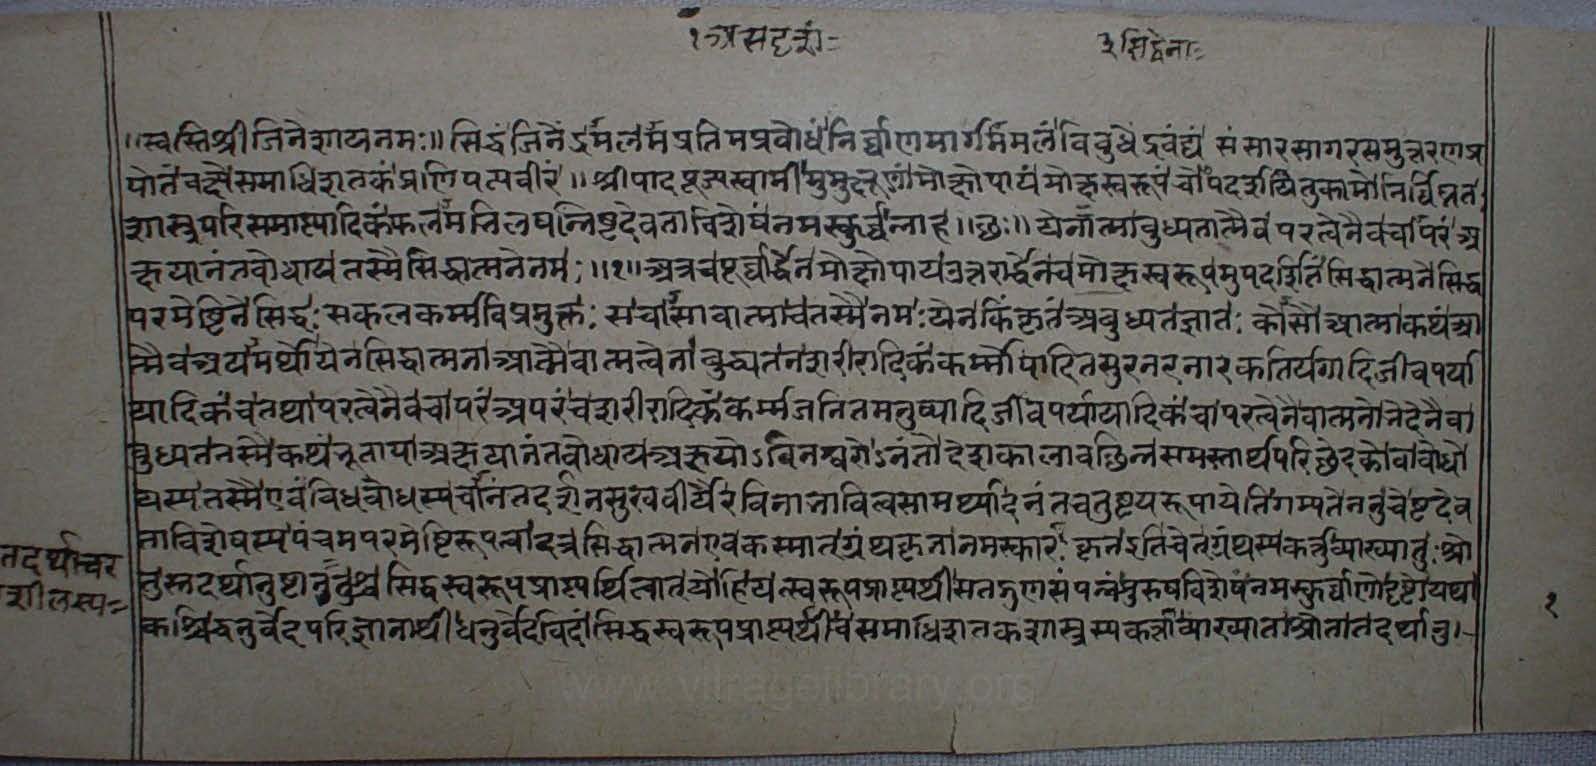 १ असदृशं=
३ सिद्धेनाः=
॥स्वस्तिश्रीजिनेशायनमः॥ सिद्धंजिनेंद्रममलमप्रतिमप्रबोधंनिर्व्वाणमार्गममलंविबुधेंद्रवंद्यं संसारसागरसमुत्तरणप्र
पोतंवक्ष्येसमाधिशतकंप्रणिपत्यवीरं॥ श्रीपादपूज्यस्वामीमुमुक्षूणांमोक्षोपायंमोक्षस्वरूपंचोपदर्शयितुकामोनिर्विघ्नतः
शास्त्रपरिसमाप्त्यादिकंफलमभिलषन्निष्टदेवताविशेषंनमस्कुर्व्वन्नाह॥छः॥ येनात्माबुध्यतात्मैवपरत्वेनैवचापरंअ
क्षयानंतबोधायतस्मैसिद्धात्मनेनमः॥१॥अत्रचपूर्व्वार्द्धेनमोक्षोपायउत्तरार्द्धेनचमोक्षस्वरूपमुपदर्शितिंसिद्धात्मनेसिद्ध
परमेष्टिनेसिद्धः सकलकर्म्मविप्रमुक्तः सचासावात्माचतस्मैनमः येनकिंकृतंअबुध्यतज्ञातः कोसौआत्माकथंआ
त्मैवअयमर्थोयेनसिद्धात्मनाआत्मैवात्मत्वेनाबुद्ध्यतनशरीरादिकंकर्म्मोपादितसुरनरनारकतिर्यगादिजीवपर्या
यादिकंचतथापरत्वेनैवचापरंअपरंचशरीरादिकंकर्म्मजनितमनुष्यादिजीवपर्यायादिकंचापरत्वेनैवात्मनोभेदेनैवा
बुध्यततस्मैकथंभूतायाअक्षयानंतबोधायअक्षयोऽविनश्वरोऽनंतोदेशकालावछिन्नसमस्तार्थपरिछेदकोवाबोधो
यस्यतस्मैएवंविधबोधस्यचानंतदर्शनसुखवीर्यैरविनाभावित्वसामर्थ्यादनंतचतुष्टयरूपायेतिगम्यतेननुचेष्टदेव
ताविशेषस्यपंचमपरमेष्टिरूपत्वादत्रसिद्धात्मनएवकस्मात्ग्रंथकृतानमस्कारः कृतइतिचेत्ग्रंथस्यकर्त्तुर्व्याख्यातुःश्रो
तुस्तदर्थानुष्ठातुश्चसिद्धस्वरूपप्राप्त्यर्थित्वात्योहियत्स्वरूपप्राप्त्यर्थीसतद्गुणसंपन्नंपुरुषविशेषंनमस्कुर्व्वाणोदृष्टोयथा
कश्चिद्धनुर्वेदपरिज्ञानार्थीधनुर्वेदविदंसिद्धस्वरूपप्राप्त्यर्थीचसमाधिशतकशास्त्रस्यकर्त्ताव्याख्याताश्रोतातदर्थानु।
तदर्थाचर
शीलस्य=
१
www.vitragelibrary.org